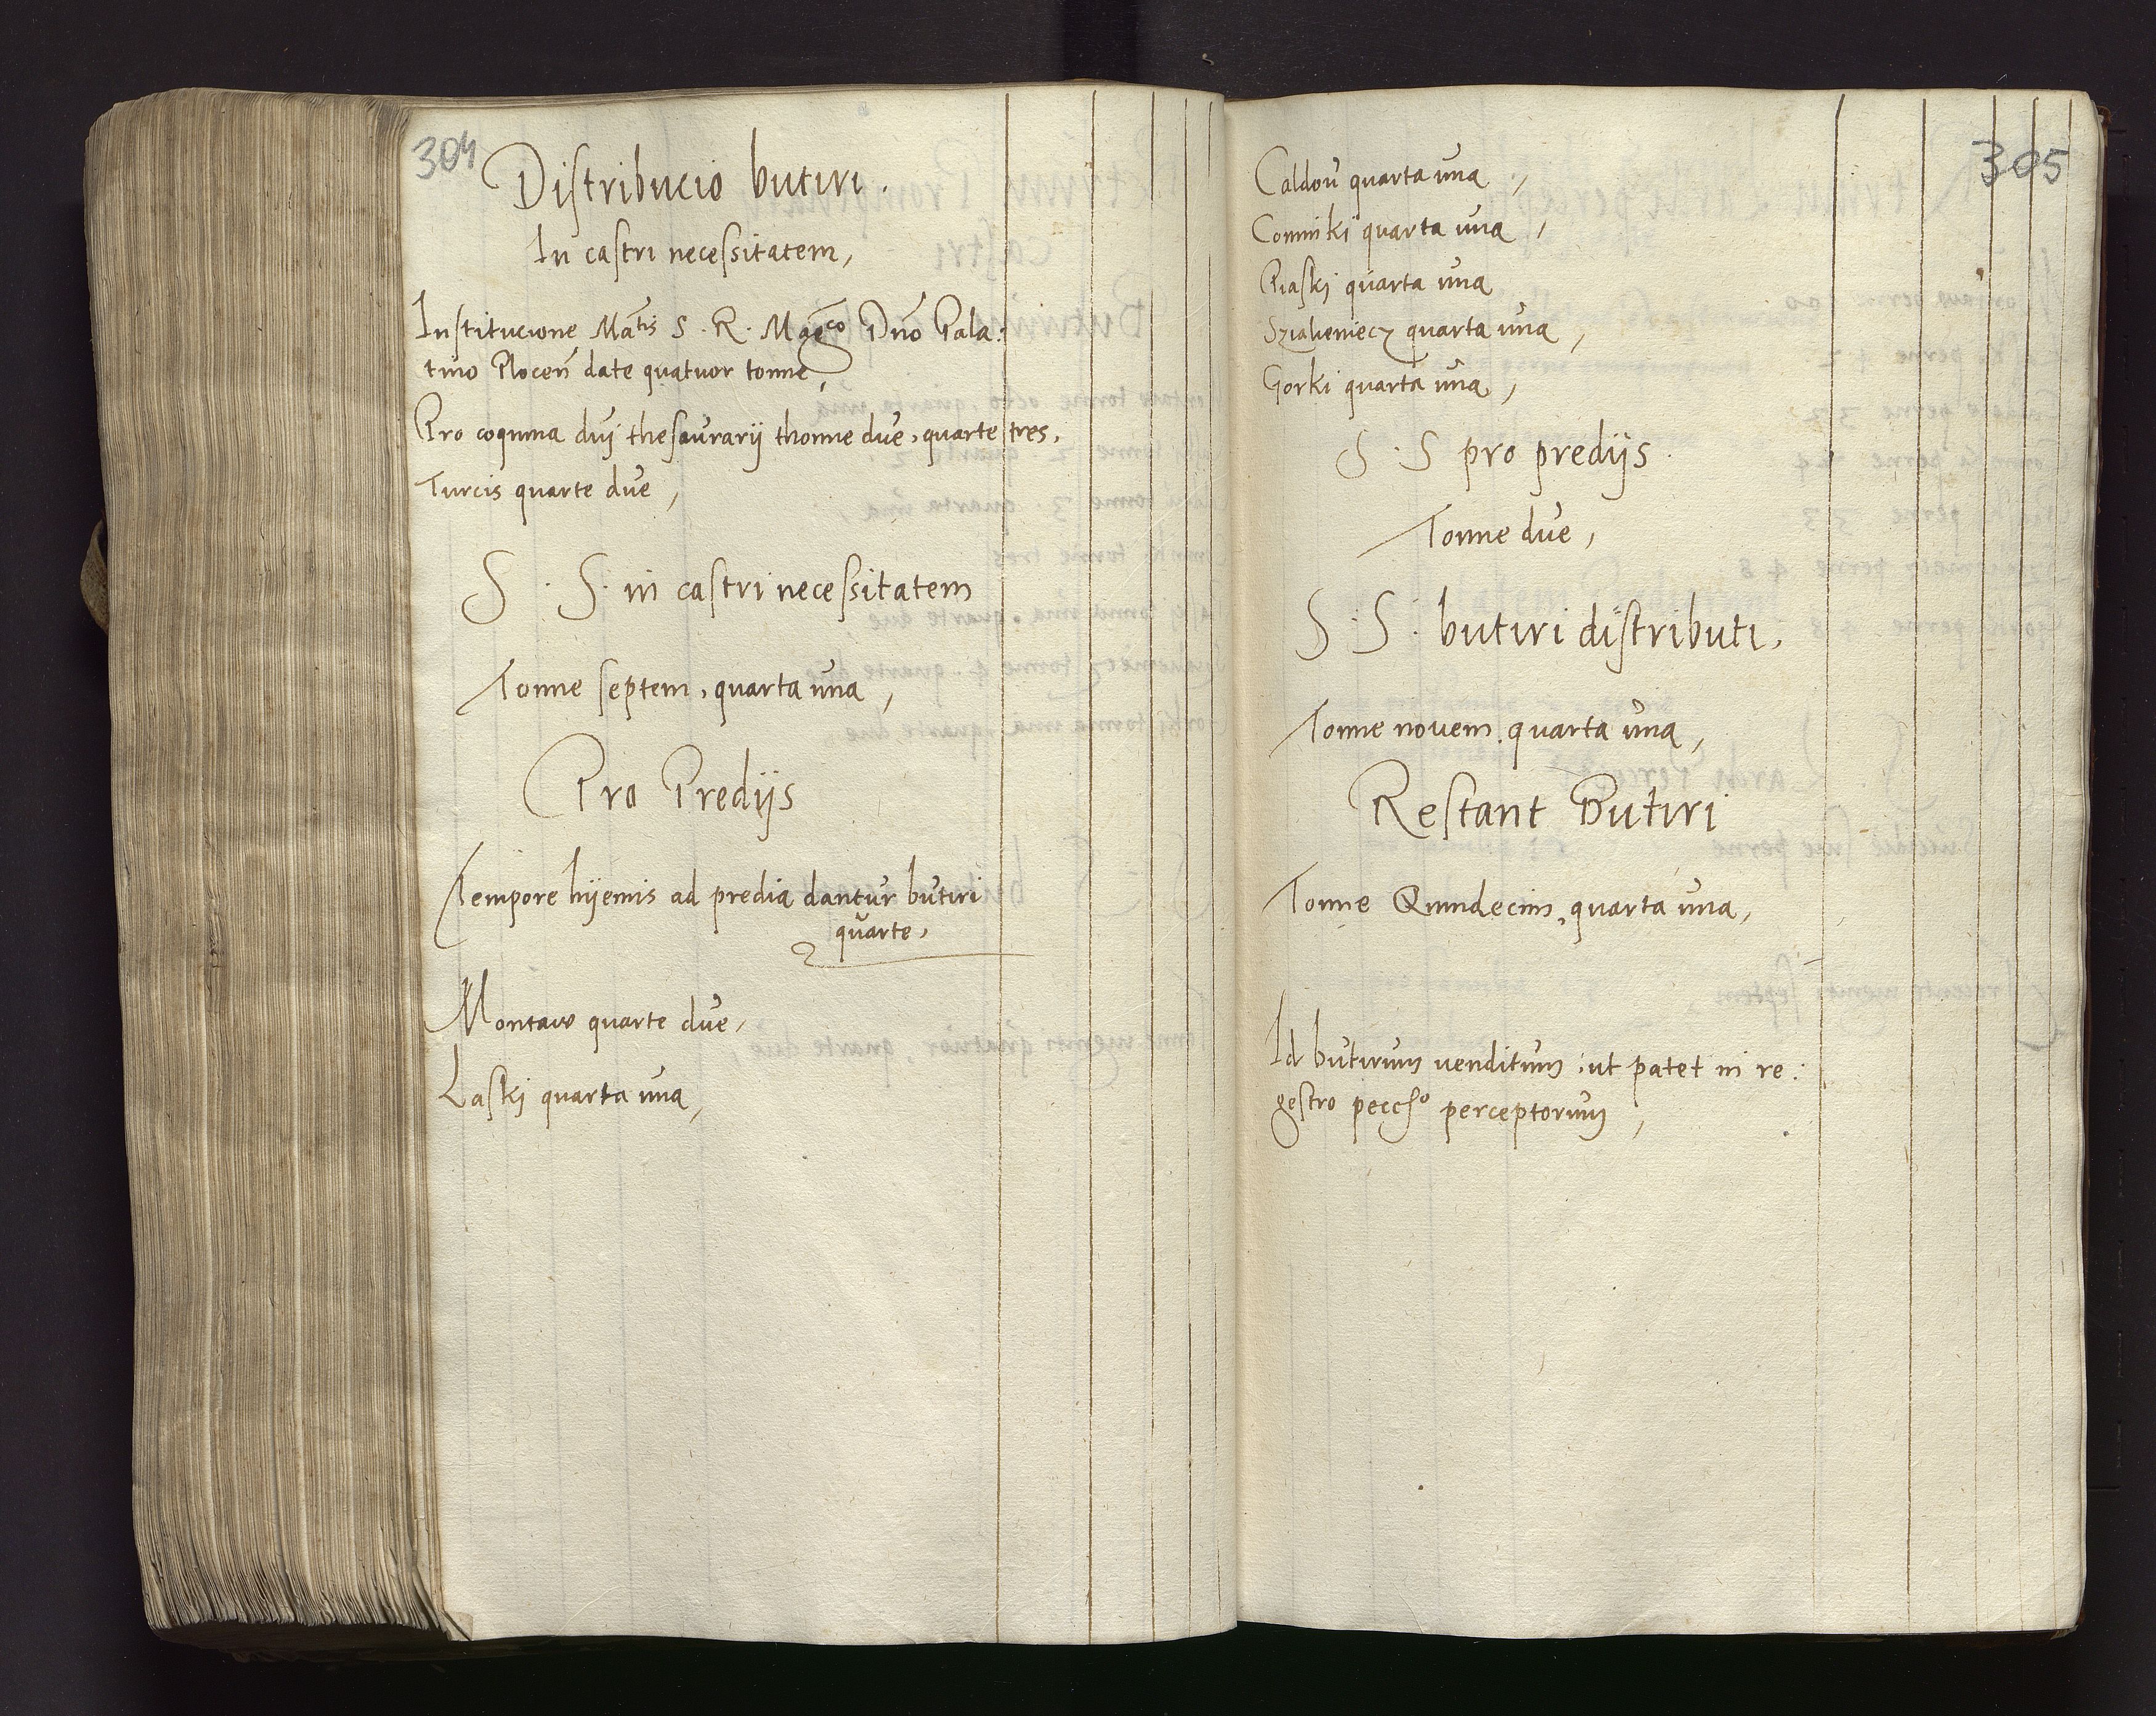 304
Distribucio butiri.
In castri necessitatem,
Institucione Mātis S. R. Magco Dno Pala:
tino Plocen̄ date quatuor tonne,
Pro coquina dn̄j thesaurarij thonne due, quarte tres,
Turcis quarte due,
S. S. in castri necessitatem
Tonne septem, quarta una,
Pro Predijs
Tempore hyemis ad predia dantur butiri
quarte,
Montaw quarte due,
Laski quarta una,
305
Caldou quarta una,
Cominki quarta una,
Piaski quarta una
quarta una,
Gorki quarta una,
S. S pro predijs.
Tonne due,
S. S. butiri distributi,
Tonne novem, quarta una,
Restant Butiri
Tonne Quindecim, quarta una,
Id butirum venditum, ut patet in re:
gestro perceptorum,